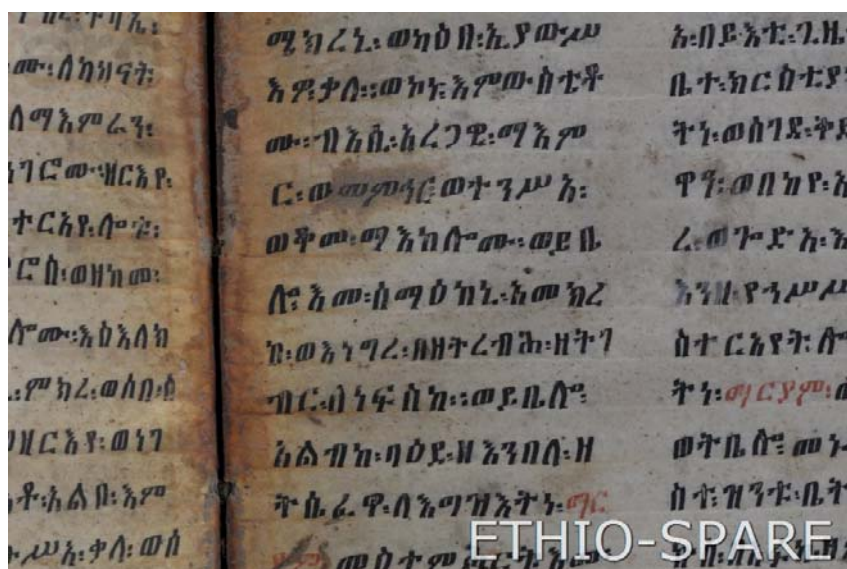 ሙ፡ለከሃናት፡
ለማእምራን፡
ነገሮሙ፡ዝርእየ፡
ተርእየ፡ሎቱ፡
ሮስ፡ወዘከመ፡
ሎሙ፡እስእለክ
ምክረ፡ወሰበ፡ሰ
ዘርእየ፡ወነገ
ቶ፡አልቦ፡እም
ሥአ፡ቃለ፡ወሰ
ሜክረኒ፡ወካዕበ፡ኢያውሥ
እዎ፡ቃለ፡፡ወኮነ፡እምውስቴቶ
ሙ፡ብእሲ፡አረጋዊ፡ማእም
ር፡ወመምህር፡ወተንሥአ፡
ወቆመ፡ማእከሎሙ፡ወይቤ
ሎ፡እመ፡ሰማዕከኒ፡አመክረ
ከ፡ወእነግረ፡በዘትረብሕ፡ዘትገ
ብር፡ለነፍስከ፡፡ወይቤሎ፡
አልብከ፡ባዕደ፡ዘእንበለ፡ዘ
ትሴፈዋ፡ለእግዝእትነ፡ማር
ያም፡መስተምሕርት፡እመ
አ፡በይእቲ፡ጊዜ
ቤተ፡ክርስቲያ
ትነ፡ወሰገደ፡ቅድ
ዋዓ፡ወበከየ፡አ
ረ፡ወጐድአ፡እ
እንዘ፡የኀሥሥ
ስተርአየት፡ሎ
ትነ፡ማርያም፡ወ
ወትቤሎ፡መኑ
ስተ፡ዝንቱ፡ቤት
ETHIO-SPARE